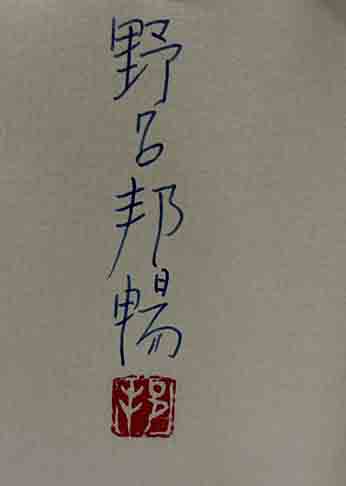 野呂邦暢
邦